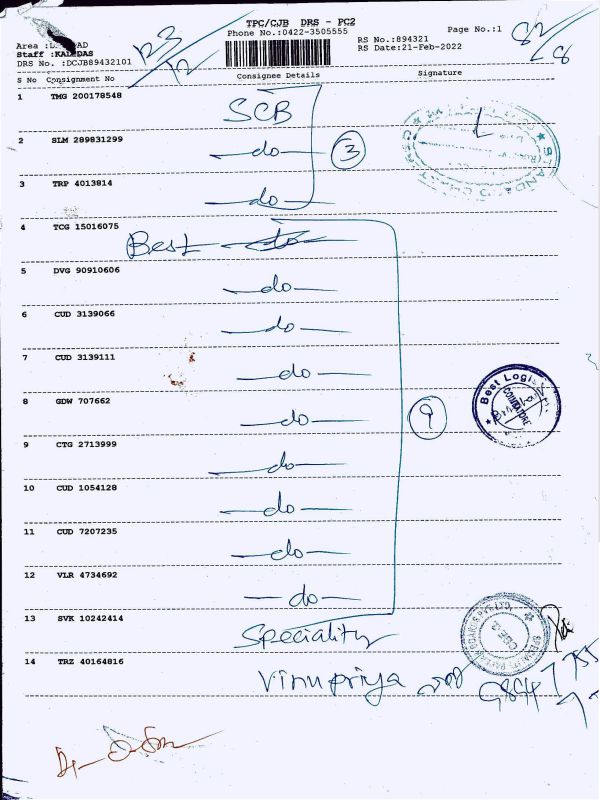 TPC/CJB DRS - PC2
Phone No.:0422-3505555
Page No.:1
82/8
Area :
RS No.:894321
Staff :KALIDAS
RS Date:21-Feb-2022
DRS No. :DCJB89432101
123/12
S No Consignment No Consignee Details Signature
1 TMG 200178548
SCB
2 SLM 289831299
-do-
3
3 TRP 4013814
-do-
4 TCG 15016075
Best -do-
5 DVG 90910606
-do-
6 CUD 3139066
-do-
7 CUD 3139111
-do-
8 GDW 707662
-do-
9
Best Logis
COIMBATORE
9 CTG 2713999
-do-
10 CUD 1054128
-do-
11 CUD 7207235
-do-
12 VLR 4734692
-do-
13 SVK 10242414
Speciality
14 TRZ 40164816
Vinupriya